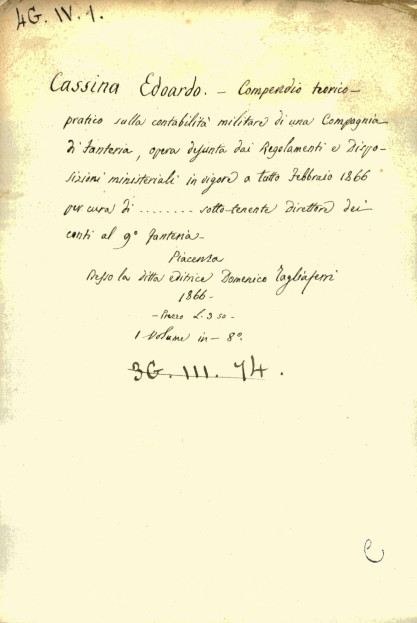 4G. IV. 1.
Cassina Edoardo. — Compendio teorico-
pratico sulla contabilità militare di una Compagnia
di fanteria, opera desunta dai Regolamenti e Dispo-
sizioni ministeriali in vigore a tutto Febbraio 1866
per cura di ........ sotto-tenente direttore dei
conti al 9° fanteria-
Piacenza
presso la ditta editrice Domenico Tagliaferri
1866-
- Prezzo L. 3 50 -
1 Volume in - 8°.
3G. III. 74.
C